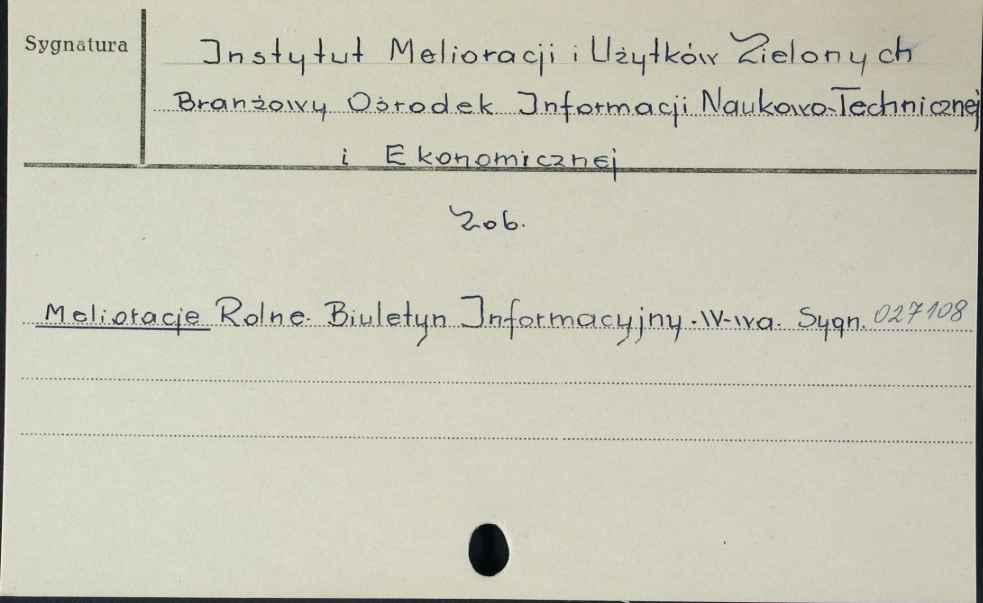 Sygnatura
Instytut Melioracji i Użytków Zielonych
Branżowy Ośrodek Informacji Naukowo-Technicznej
i Ekonomicznej
Zob.
Melioracje Rolne. Biuletyn Informacyjny. W-wa. Sygn. 027108